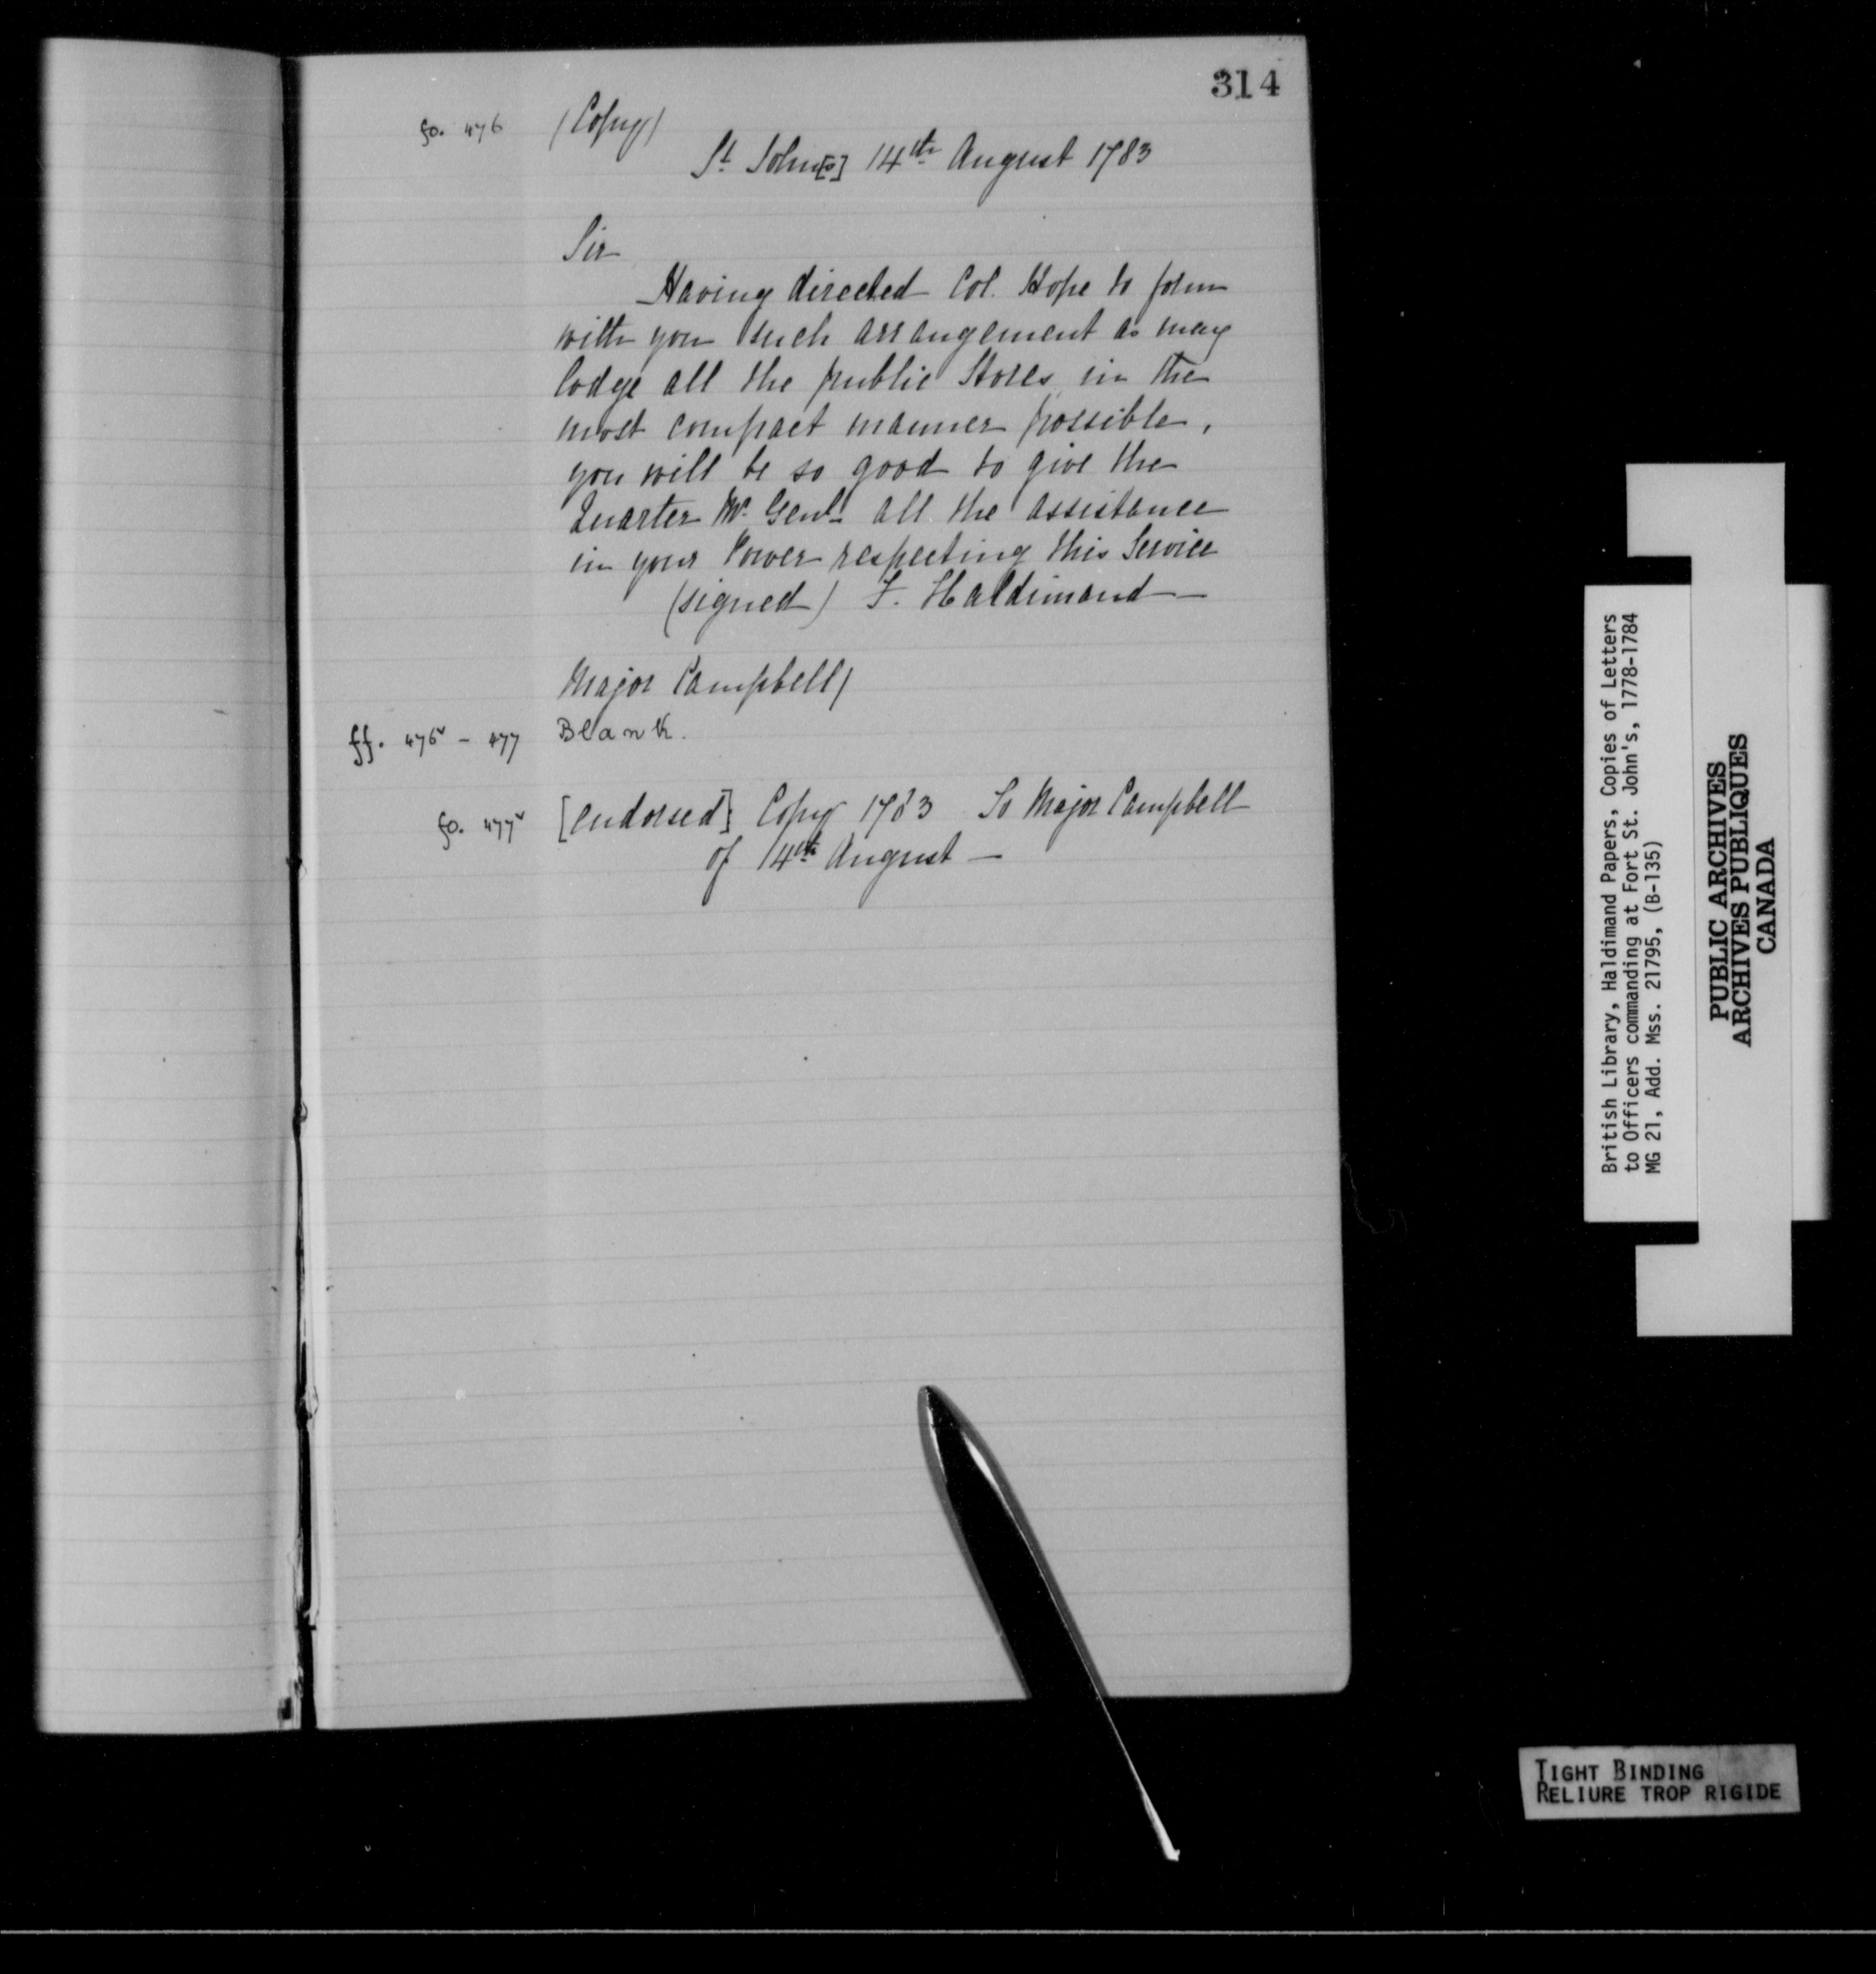 314
fo. 476 (Copy)
St John[s] 14th August 1783
Sir
Having directed Col. Hope to form
with you such arrangement as may
lodge all the public Stores in the
most compact manner possible,
you will be so good to give the
Quarter Mr. Genl. all the assistance
in your Power respecting this Service
(signed) F. Haldimand —
Major Campbell/
ff. 476v - 477 Blank.
fo. 477v [endorsed] Copy 1783 To Major Campbell
of 14th August —
British Library, Haldimand Papers, Copies of Letters
to Officers commanding at Fort St. John's, 1778-1784
MG 21, Add. Mss. 21795, (B-135)
PUBLIC ARCHIVES
ARCHIVES PUBLIQUES
CANADA
TIGHT BINDING
RELIURE TROP RIGIDE